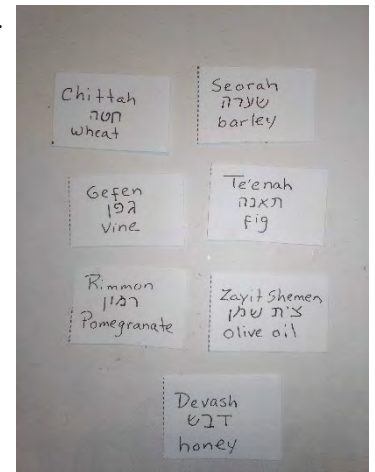 Chittah
חטה
wheat
Seorah
שערה
barley
Gefen
גפן
Vine
Te'enah
תאנה
fig
Rimmon
רמון
Pomegranate
Zayit Shemen
צית שמן
olive oil
Devash
דבש
honey